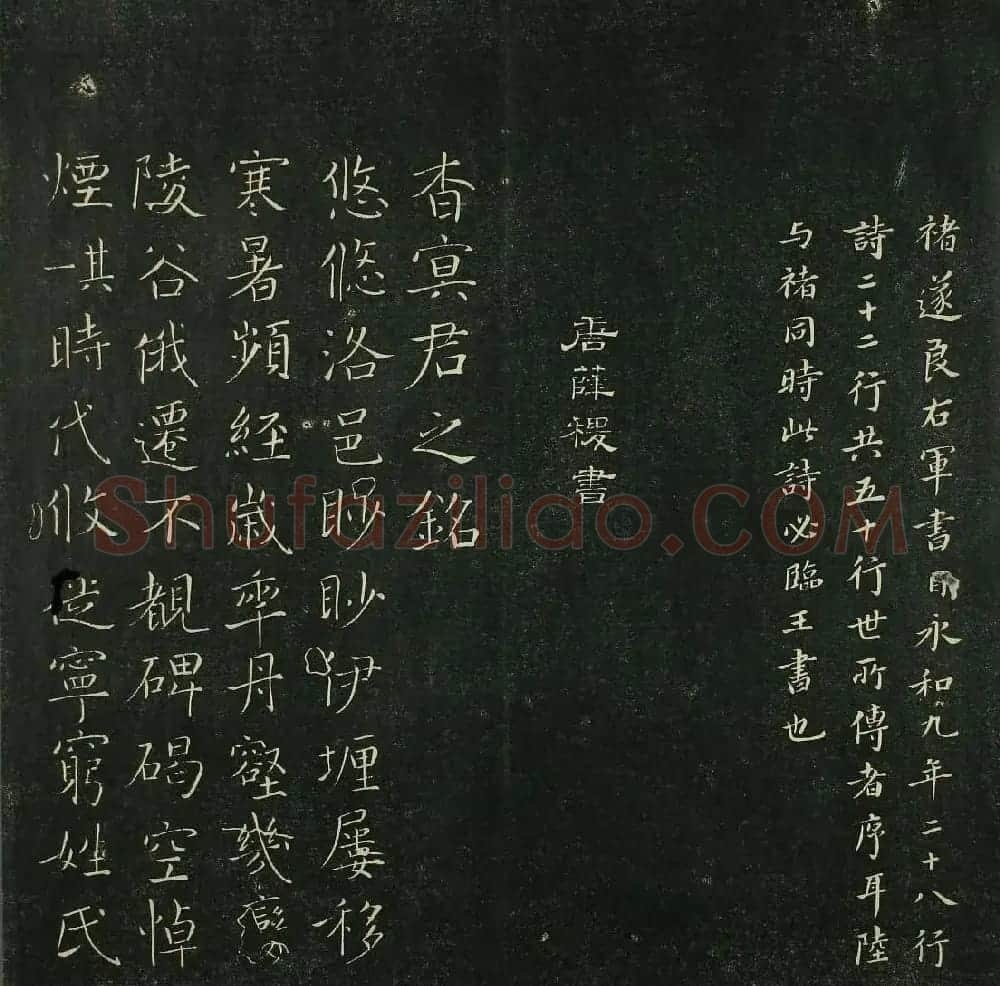 褚遂良右軍書目永和九年二十八行
詩二十二行共五十行世所傳者序耳陸
与褚同時此詩必臨王書也
唐薛稷書
杳冥君之銘
悠悠洛邑眇眇伊壥屢移
寒暑頻經歲年丹壑幾變
陵谷俄遷不覩碑碣空悼
煙一其時代攸徙寧窮姓氏
Shufaziliao.COM